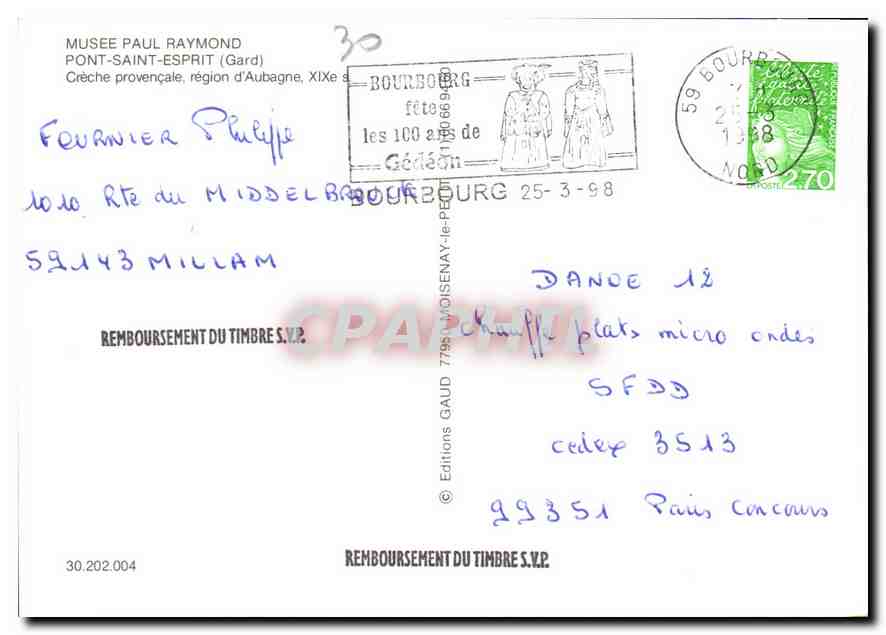 MUSEE PAUL RAYMOND
PONT-SAINT-ESPRIT (Gard)
Crèche provençale, région d'Aubagne, XIXe s
30
BOURBOURG
fête
les 100 ans de
Gédéon
BOURBOURG 25-3-98
59 BOURBOURG
25-3
1998
NORD
LA POSTE 2,70
FOURNIER Philippe
1010 Rte du MIDDELBROUCK
59143 MILLAM
DANOE 12
chauffe plats micro ondes
SFDD
cedex 3513
99351 Paris Concours
CPAPHIL
REMBOURSEMENT DU TIMBRE S.V.P.
REMBOURSEMENT DU TIMBRE S.V.P.
© Editions GAUD 77950 MOISENAY-le-PETIT
30.202.004